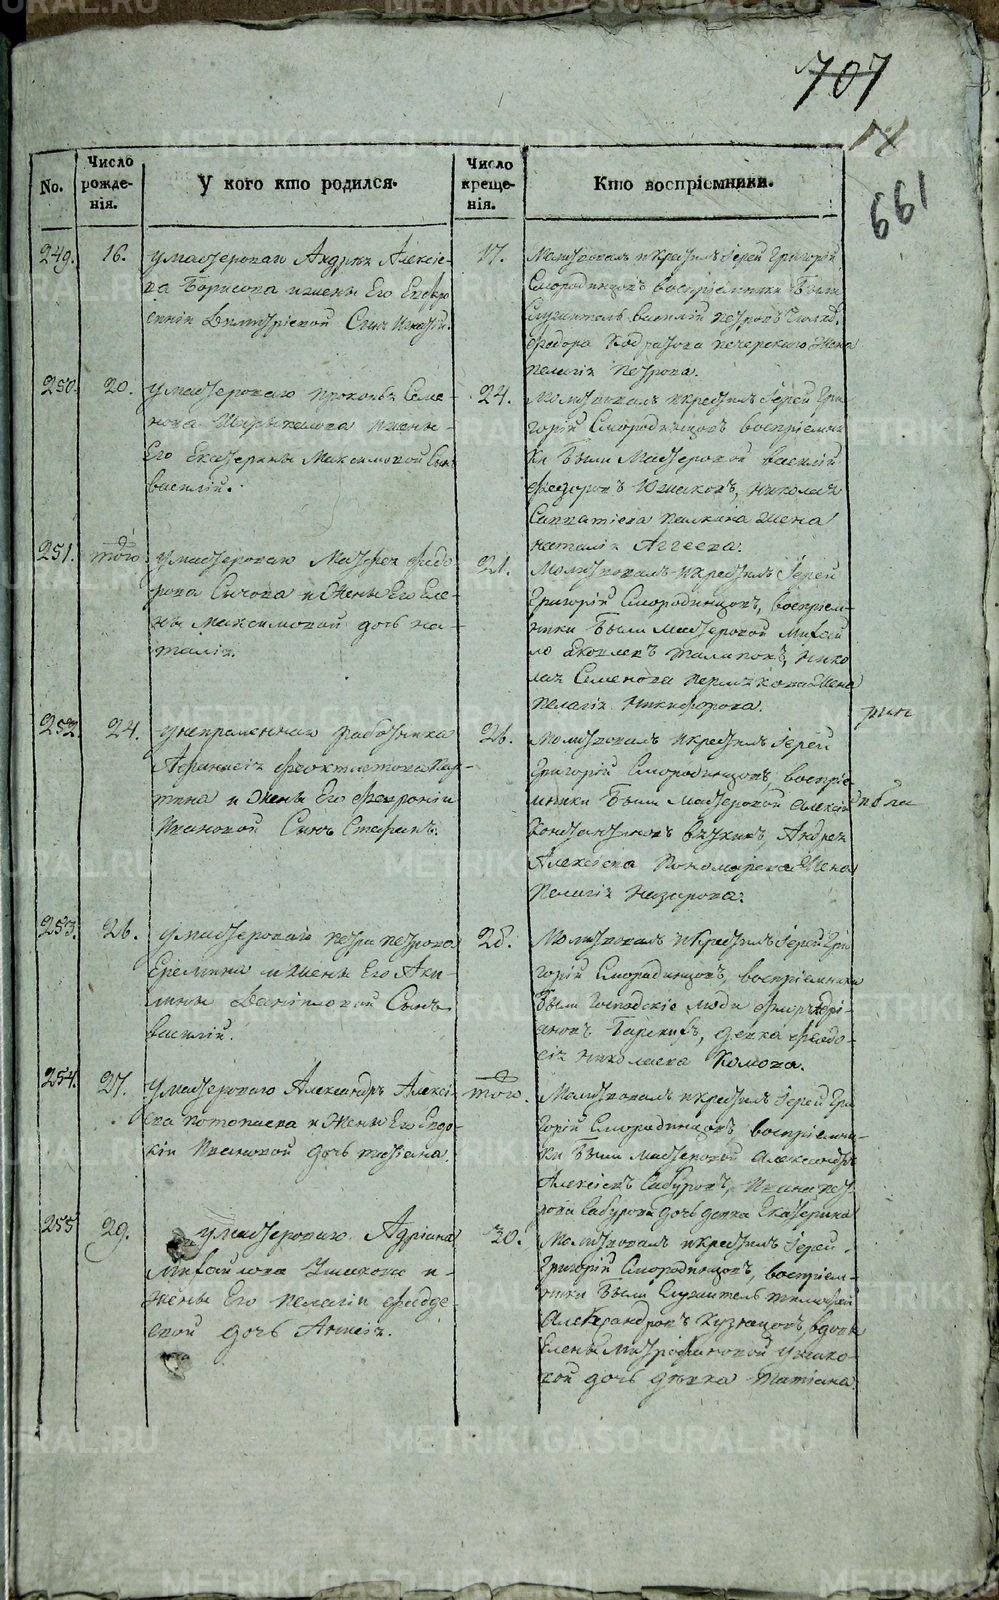 707
661
No.
Число рожде-нія.
У кого кто родился.
Число креще-нія.
Кто воспріемники.
249.
16.
у мастероваго Андрея Алексіе-
ва Борисова и жены Его Евфро
синіи Димитріевой Сынъ Игнатій.
17.
Молитвовалъ и крестилъ Іерей Григорій
Смородинцовъ воспріемники были
Служитель василій петровъ
федора печерскаго жена
пелагія петрова.
250.
20.
у мастероваго прокопья Семе-
нова и жены
Его Екатерины Максимовой Сынъ
василій.
24.
Молитвовалъ и крестилъ Іерей Гри
горій Смородинцовъ воспріемни
ки были Мастеровой василій
феодоровъ Юшковъ, николая
Савватіева палкина жена
наталія Аггеева.
251.
того
у мастероваго Матфея федо
рова Сычова и жены Его Еле-
ны Максимовой дочь на-
талія.
21.
Молитвовалъ и крестилъ Іерей
Григорій Смородинцовъ, воспріем-
ники были мастеровой михай
ло яковлевъ, нико
лая Семенова пермякова жена
пелагія никифорова.
252.
24.
у непременнаго работника
Афанасія феоктистова
и жены Его февроніи
Ивановой Сынъ Стефанъ.
26.
Молитвовалъ и крестилъ Іерей
Григорій Смородинцовъ, воспріе
мники были мастеровой алексій
Константиновъ, Андрея
Алексіева пономарева жена
Пелагія назарова.
253.
26.
у мастероваго петра петрова
Еремина и жены Его Аки-
лины Даниловой Сынъ
василій.
28.
Молитвовалъ и крестилъ Іерей Гри
горій Смородинцовъ, воспріемники
были господскіе люди
ановъ, девка федо-
сія николаева Комова.
254.
27.
у мастероваго Александра Алексі-
ева потопаева и жены Его Евдо-
кіи Ивановой дочь татіана.
того.
Молитвовалъ и крестилъ Іерей Гри
горій Смородинцовъ воспріемни-
ки были мастеровой Александръ
Алексіевъ Сабуровъ, Ивана пет
рова Сабурова дочь девка Екатерина
255
29.
у мастероваго Адріана
михайлова Ушакова и
жены Его пелагіи фадде-
евой дочь Анисія.
30.
Молитвовалъ и крестилъ Іерей
Григорій Смородинцовъ, воспріем-
ники были Служитель тимофей
Александровъ Кузнецовъ, вдовы
Елены митрофановой ушако-
вой дочь девка татіана